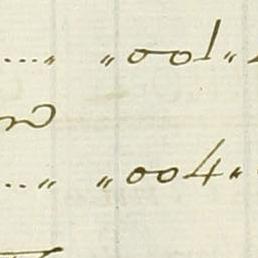 ...„ „001„
„
...„ „004„